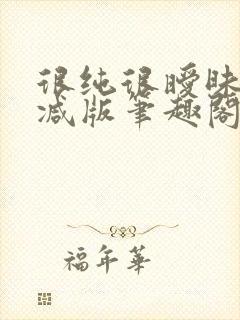 很纯很暧昧
减版笔趣阁
福年華